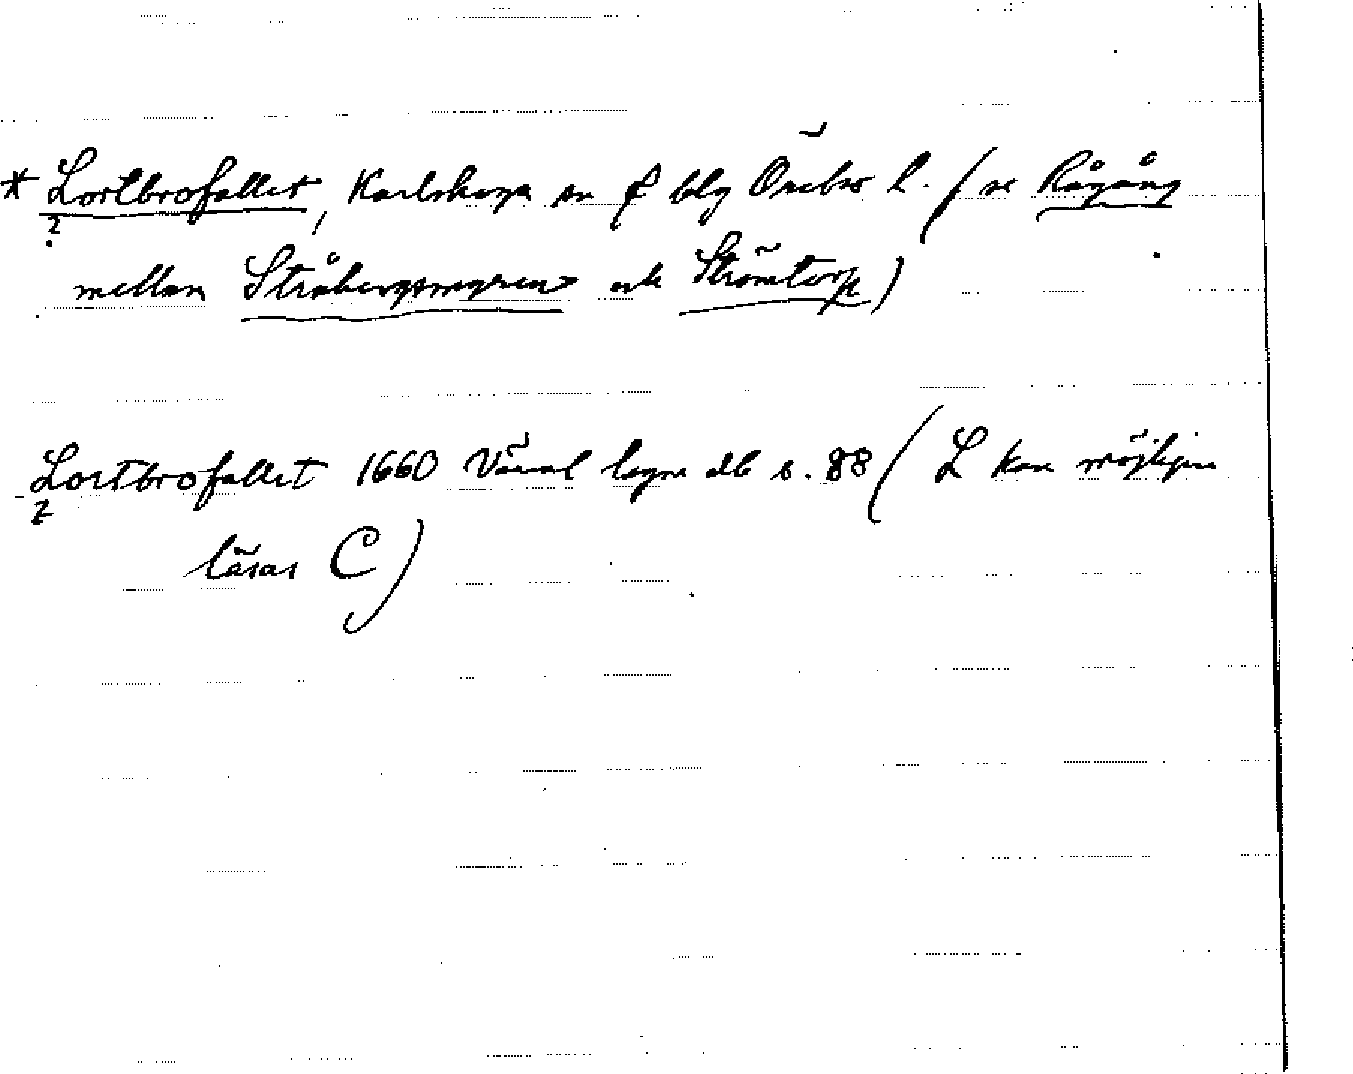 * Lortbrofallet, Karlskoga sn f blg Örebro l. (se Rågång
?
mellan Stråbergsmyren och Strömtorp)
Lortbrofallet 1660 Värml lagm db s. 88 (L kan möjligen
?
läsas C)